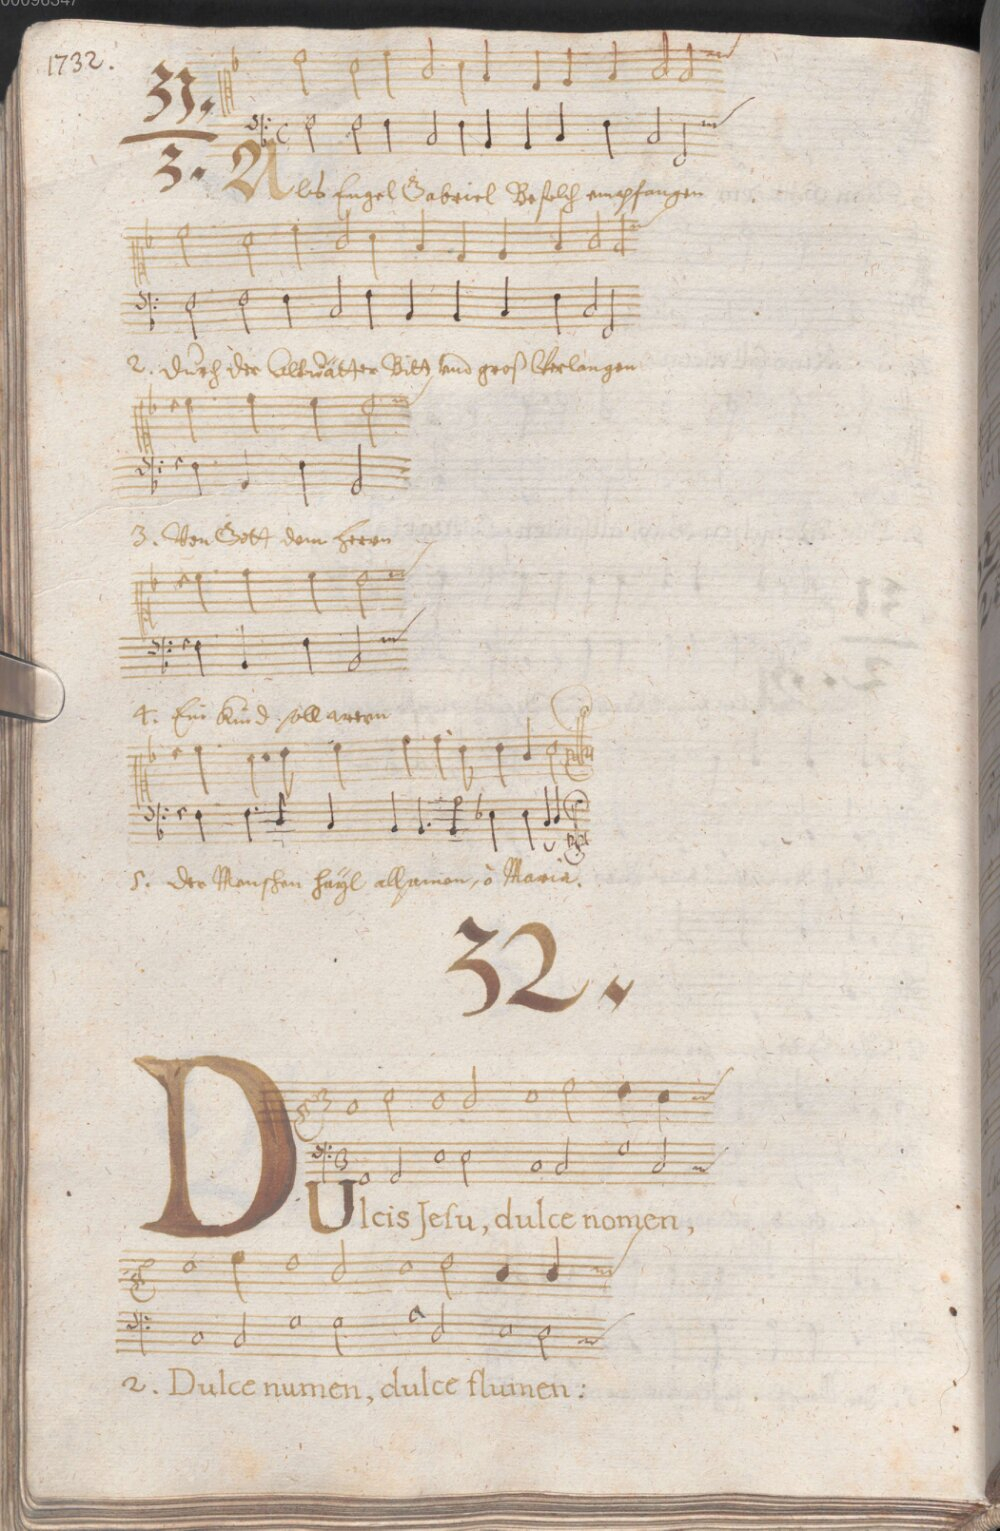 00096347
1732.
31.
3. Als Engel Gabriel Befelch empfangen
2. durch der Altvätter Bitt vnd groß Verlangen
3. Von Gott dem herrn
4. Ein Kind soll
5. der Menschen hayl allzeit, ô Maria.
32.
DUlcis Jesu, dulce nomen,
2. Dulce numen, dulce flumen: